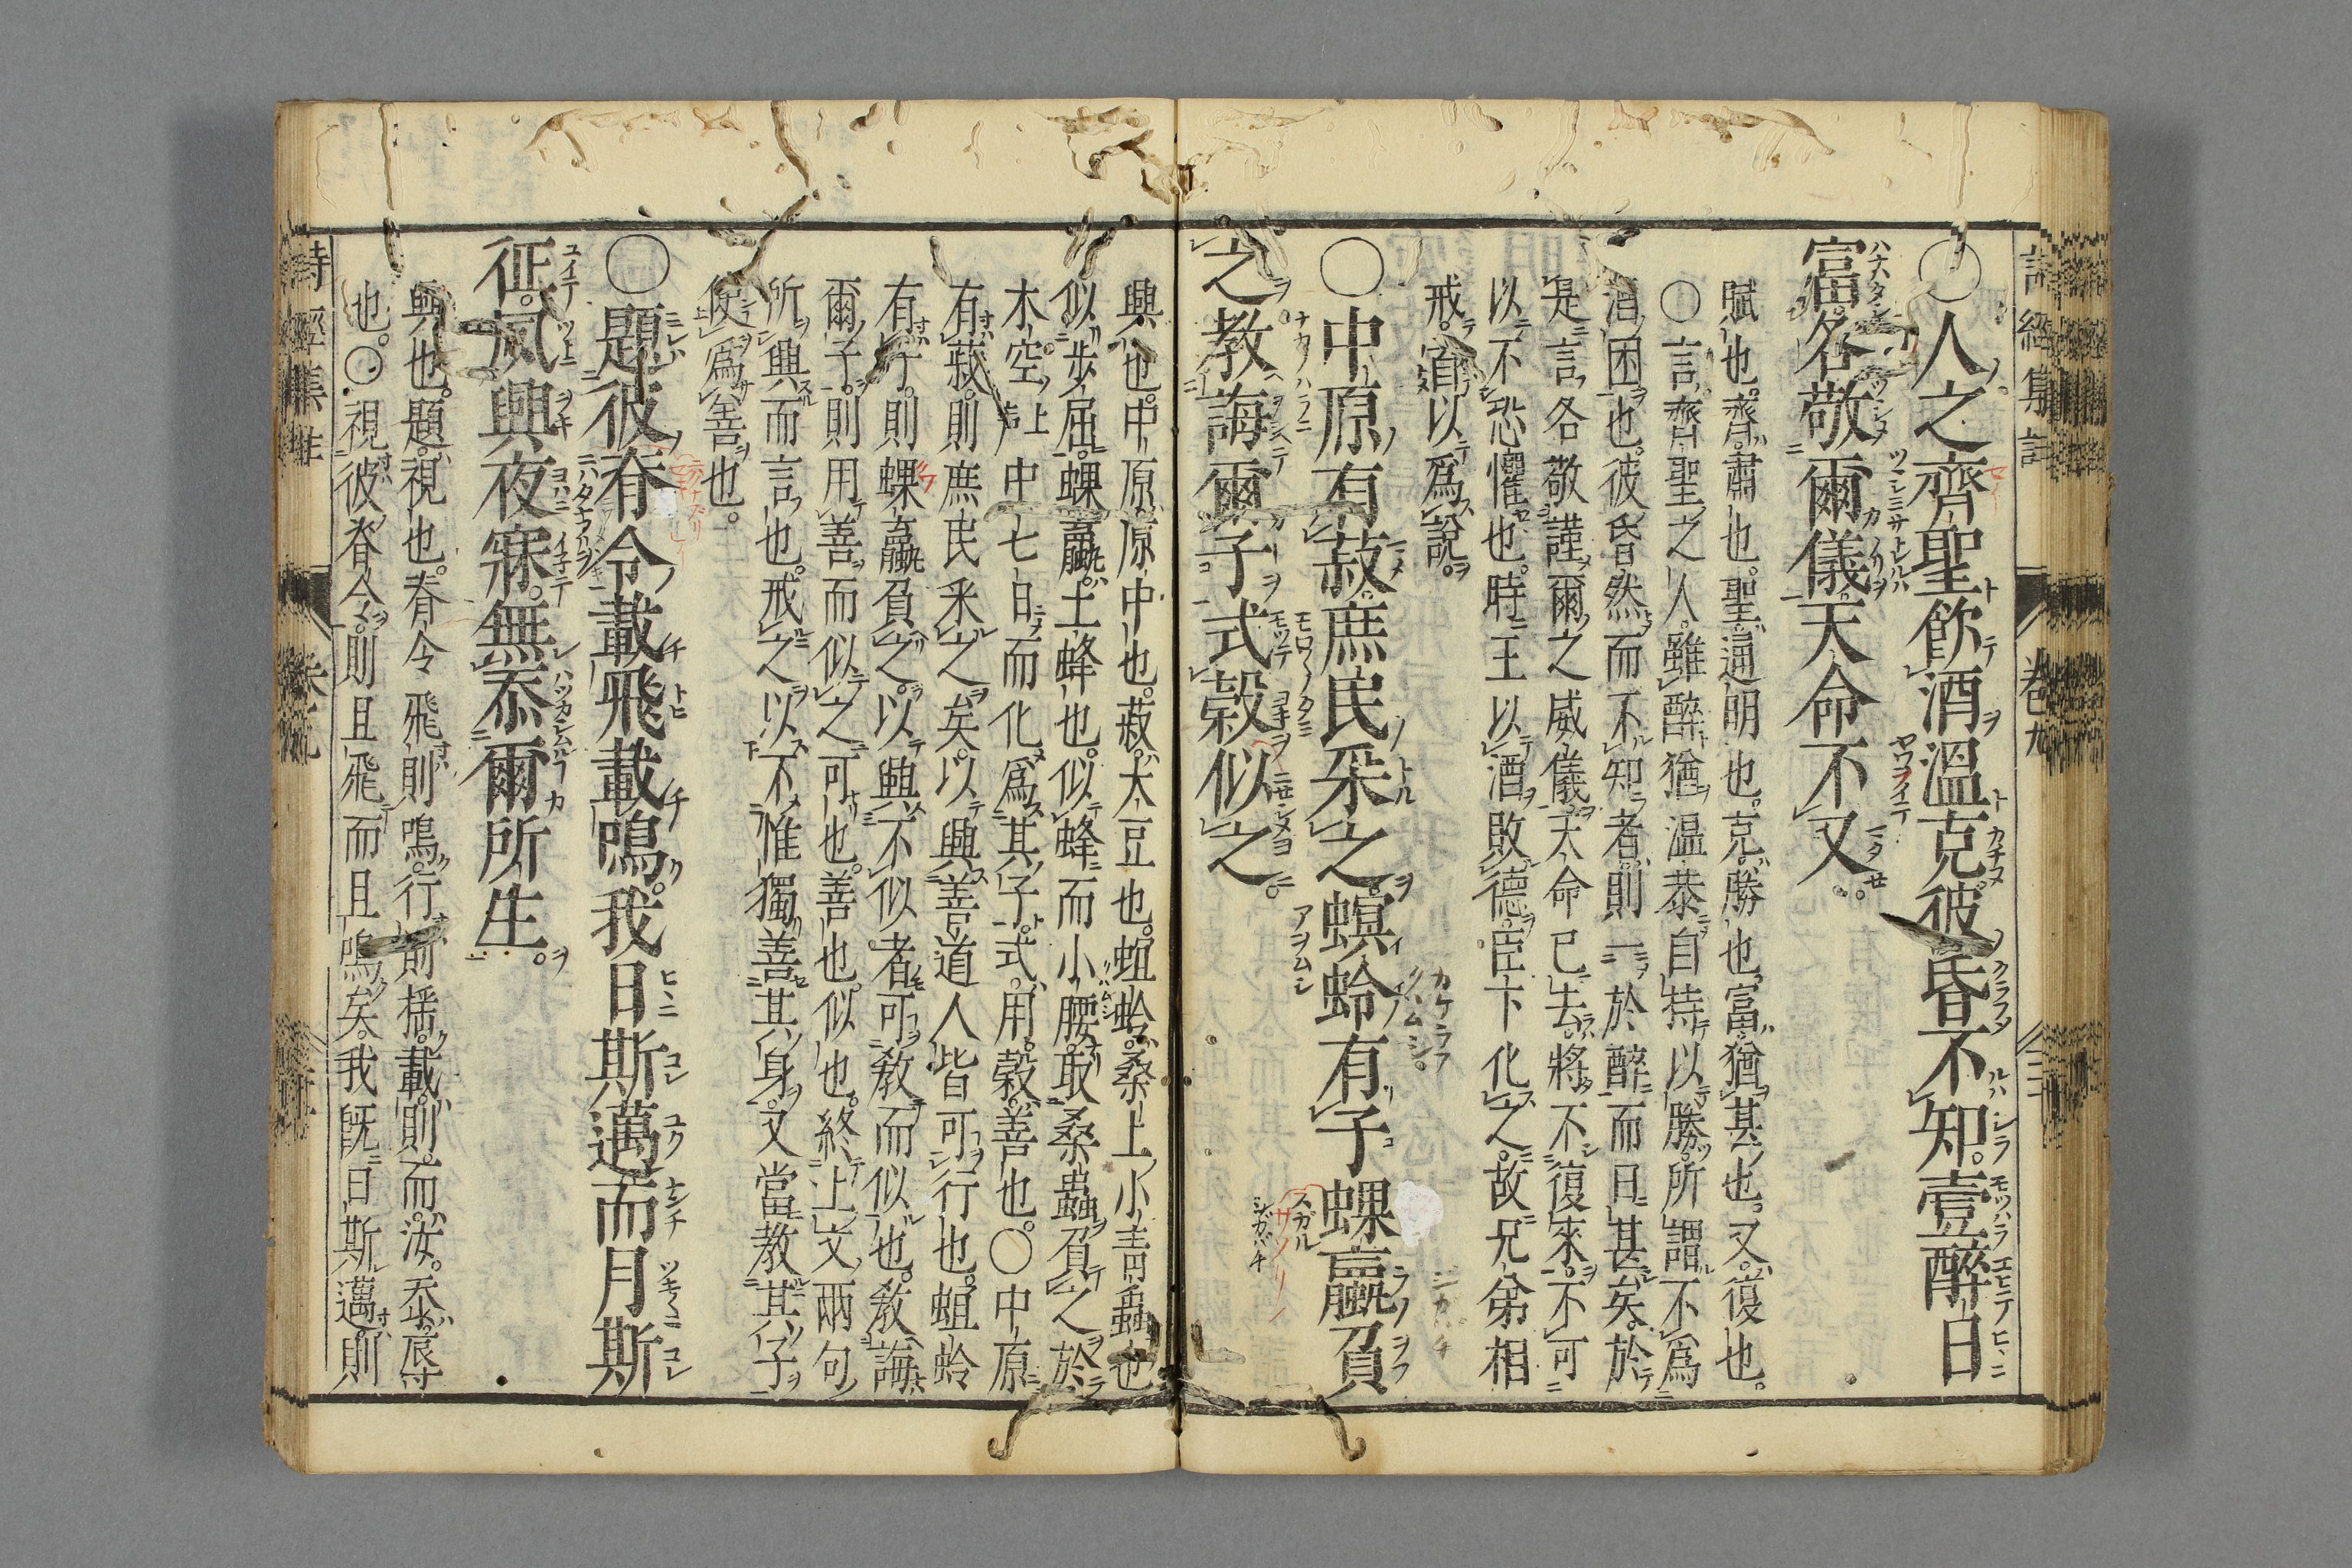 詩經集註 卷九 三
○人之齊聖飲酒溫克彼昏不知壹醉日
富各敬爾儀天命不又
賦也齊肅也聖通明也克勝也富猶甚也又復也
○言齊聖之人雖醉猶溫恭自持以勝所謂不爲
酒困也彼昏然而不知者則一於醉而日甚矣於
是言各敬謹爾之威儀天命已去將不復來不可
以不恐懼也時王以酒敗德臣下化之故兄弟相
戒首以爲說
○中原有菽庶民采之螟蛉有子蜾蠃負
之教誨爾子式穀似之
興也中原原中也菽大豆也螟蛉桑上小青蟲也
似步屈蜾蠃土蜂也似蜂而小腰取桑蟲負之於
木空中七日而化爲其子式用穀善也○中原
有菽則庶民采之矣以興善道人皆可行也螟蛉
有子則蜾蠃負之以興不似者可教而似也教誨
爾子則用善而似之可也善也似也終上文兩句
所興而言也戒之以不惟獨善其身又當教其子
使爲善也
○題彼脊令載飛載鳴我日斯邁而月斯
征夙興夜寐無忝爾所生
興也題視也脊令飛則鳴行則搖載則而汝忝辱
也○視彼脊令則且飛而且鳴矣我既日斯邁則
詩經集註 卷九